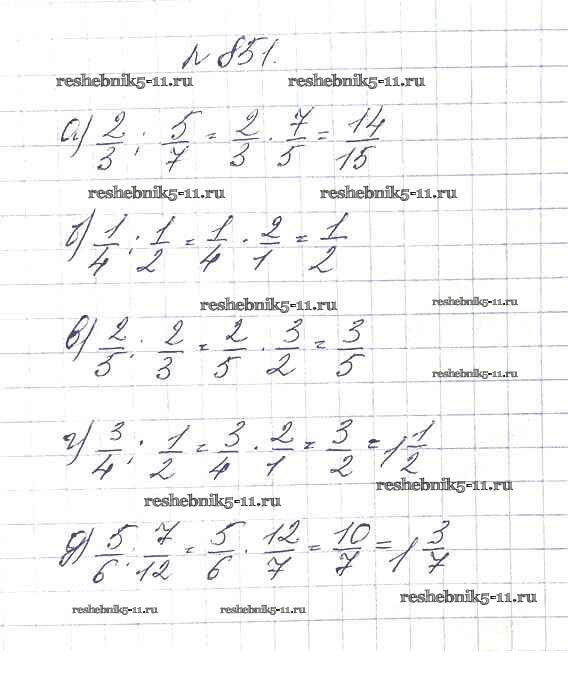 № 851.
reshebnik5-11.ru reshebnik5-11.ru
а) 2/3 : 5/7 = 2/3 · 7/5 = 14/15
reshebnik5-11.ru reshebnik5-11.ru
б) 1/4 : 1/2 = 1/4 · 2/1 = 1/2
reshebnik5-11.ru reshebnik5-11.ru
в) 2/5 : 2/3 = 2/5 · 3/2 = 3/5
reshebnik5-11.ru
г) 3/4 : 1/2 = 3/4 · 2/1 = 3/2 = 1 1/2
reshebnik5-11.ru reshebnik5-11.ru
д) 5/6 : 7/12 = 5/6 · 12/7 = 10/7 = 1 3/7
reshebnik5-11.ru reshebnik5-11.ru reshebnik5-11.ru